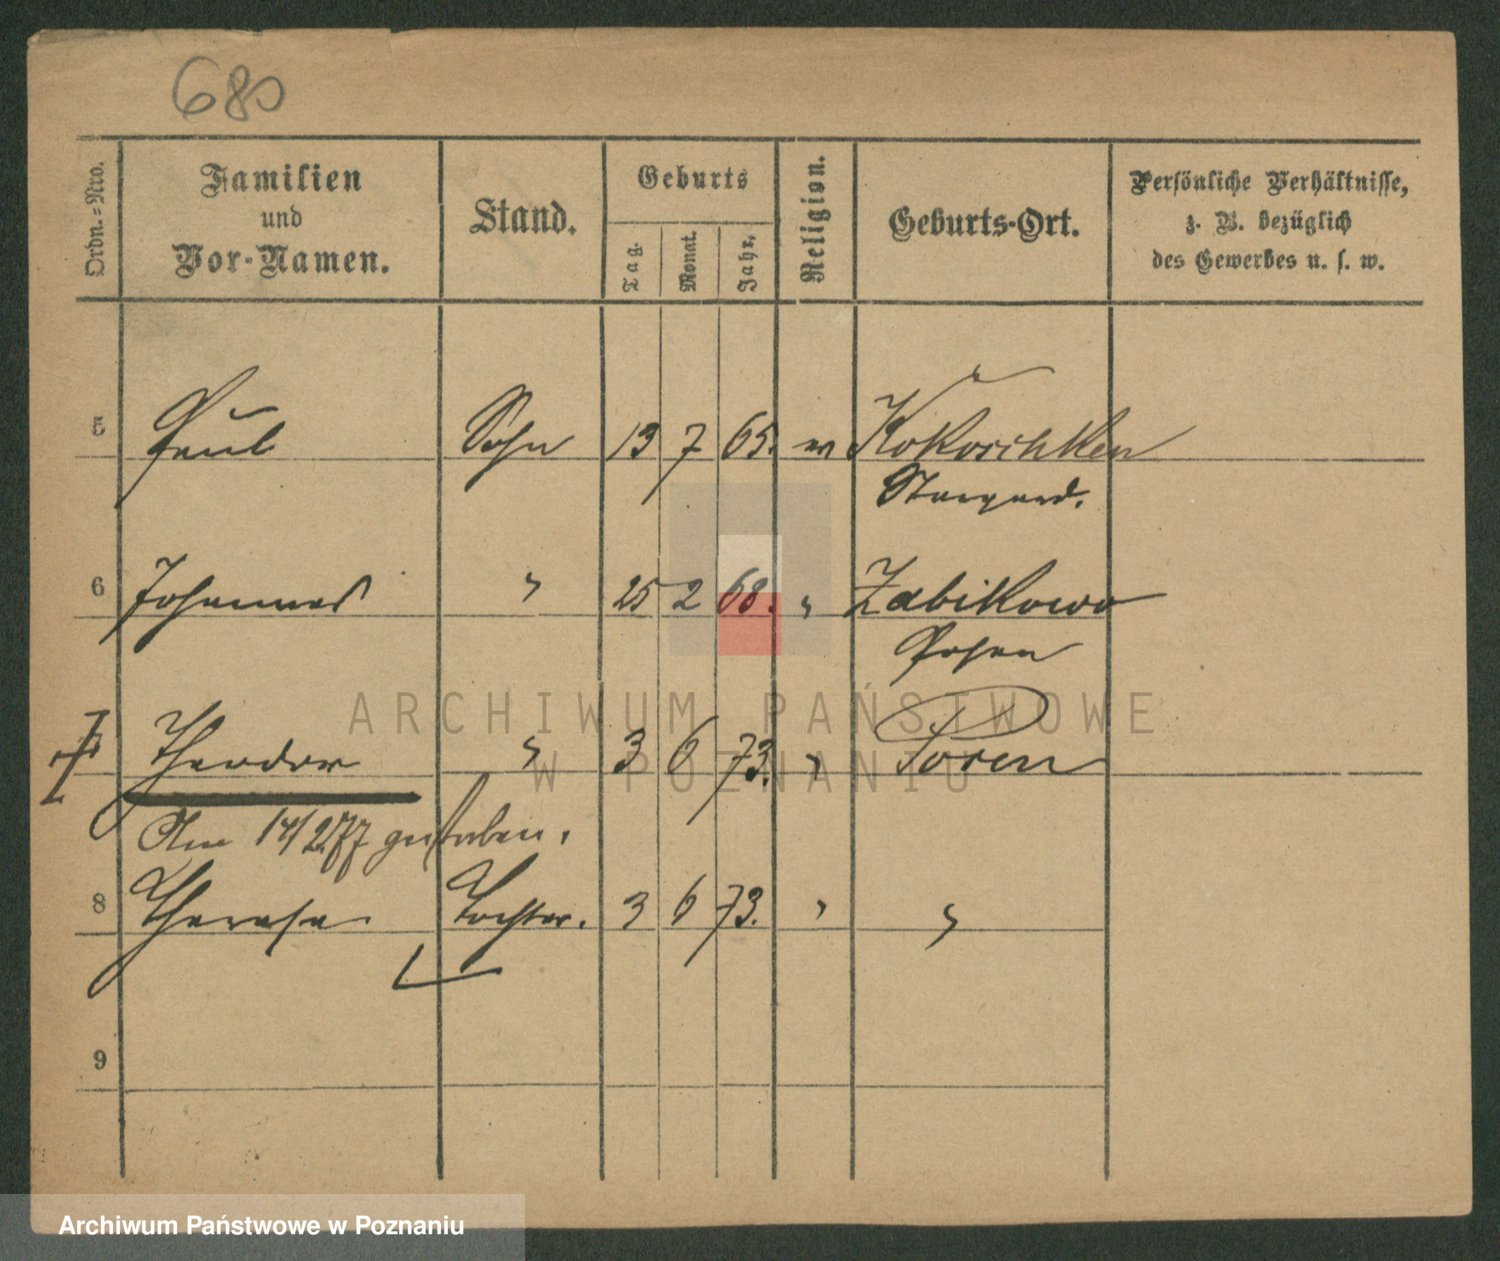 680
Ordn.-Nro.
Familien
und
Vor-Namen.
Stand.
Geburts
Tag.
Monat.
Jahr.
Religion.
Geburts-Ort.
Persönliche Verhältnisse,
z. B. bezüglich
des Gewerbes u. s. w.
5 Paul Sohn 13 7 65. Kokoschken
Stargard.
6 Johannes " 25 2 68. " Zabikowo
Posen
Theodor " 3 6 73. " Posen
Am 14/2.77 gestorben.
8 Therese Tochter. 3 6 73. " "
9
ARCHIWUM PAŃSTWOWE
W POZNANIU
Archiwum Państwowe w Poznaniu